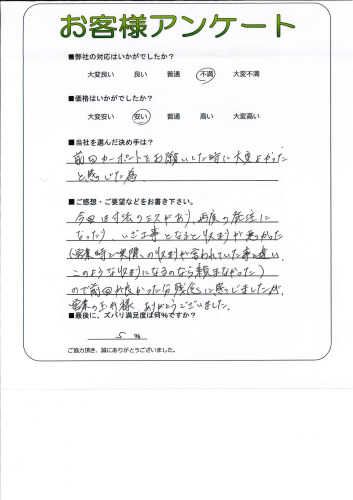 お客様アンケート
■弊社の対応はいかがでしたか？
大変良い 良い 普通 不満 大変不満
■価格はいかがでしたか？
大変安い 安い 普通 高い 大変高い
■当社を選んだ決め手は？
前回カーポートをお願いした時に大変よかった
と感じた為．
■ご感想・ご要望などをお書き下さい。
今回は寸法のミスがあり、再度の発注に
なったり、いざ工事となると収まりが悪かった
(営業時と実際の収まりが言われていた事と違い、
このような収まりになるのなら頼まなかった)
ので前回が良かった分残念に感じましたが、
営業の玉井様 ありがとうございました．
■最後に、ズバリ満足度は何％ですか？
5 ％
ご協力頂き、誠にありがとうございました。